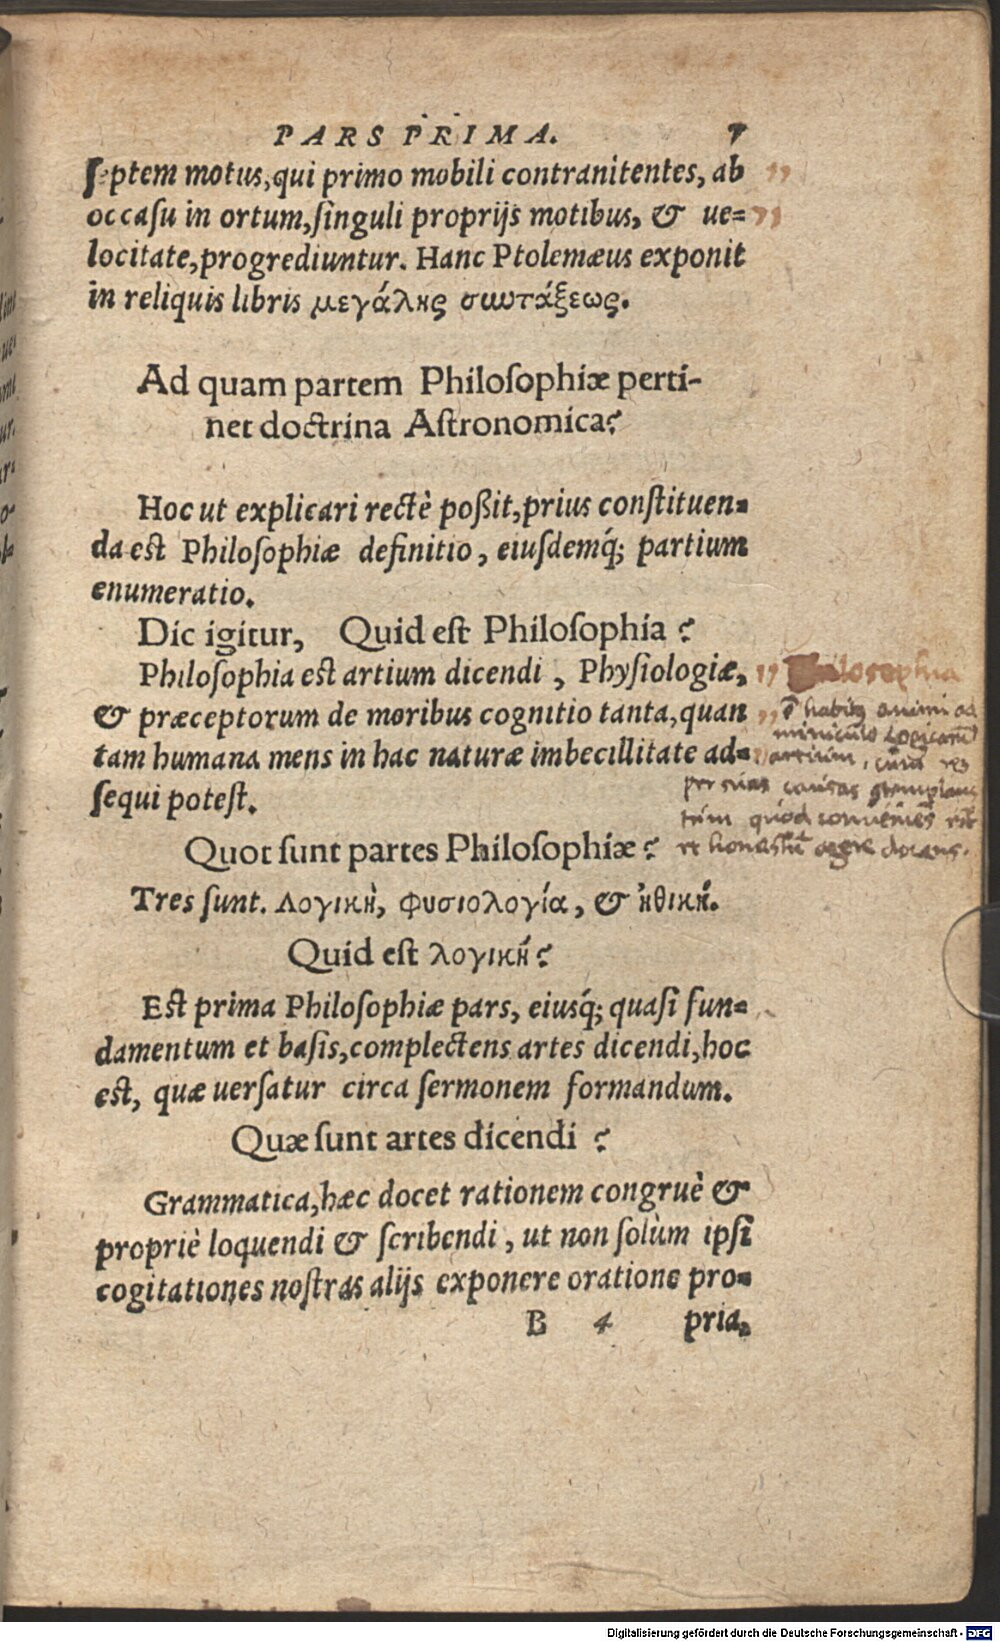 PARS PRIMA. 7
ſeptem motus, qui primo mobili contranitentes, ab
occaſu in ortum, ſinguli proprijs motibus, & ue=
locitate, progrediuntur. Hanc Ptolemæus exponit
in reliquis libris μεγάλης συντάξεως.
Ad quam partem Philoſophiæ perti-
net doctrina Aſtronomica?
Hoc ut explicari rectè poßit, prius conſtituen=
da est Philoſophiæ definitio, eiuſdemq́; partium
enumeratio.
Dic igitur, Quid eſt Philoſophia?
Philoſophia eſt artium dicendi, Phyſiologiæ,
& præceptorum de moribus cognitio tanta, quan
tam humana mens in hac naturæ imbecillitate ad=
ſequi poteſt.
Philosophia
habitus animi ad
miniculo Logicarum
artium, cum res
per suas causas contemplans
tum quod conveniens
et honestum agere docens.
Quot ſunt partes Philoſophiæ?
Tres ſunt. Λογικὴ, φυσιολογία, & ἠθική.
Quid eſt λογική?
Eſt prima Philoſophiæ pars, eiusq́; quaſi fun=
damentum et baſis, complectens artes dicendi, hoc
eſt, quæ uerſatur circa ſermonem formandum.
Quæ ſunt artes dicendi?
Grammatica, hæc docet rationem congruè &
propriè loquendi & ſcribendi, ut non ſolùm ipſi
cogitationes noſtras alijs exponere oratione pro=
B 4 pria,
Digitalisierung gefördert durch die Deutsche Forschungsgemeinschaft - DFG